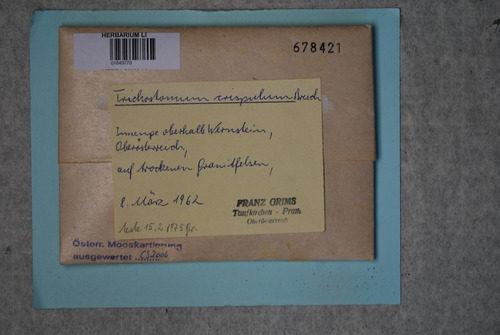 HERBARIUM LI
678421
Trichostomum crispulum Bruch
Innenge oberhalb Wernstein,
Oberösterreich,
auf trockenen Granitfelsen,
8. März 1962
FRANZ GRIMS
Taufkirchen - Pram
Oberösterreich
teste 15.2.1975 Gr.
Österr. Mooskartierung
ausgewertet